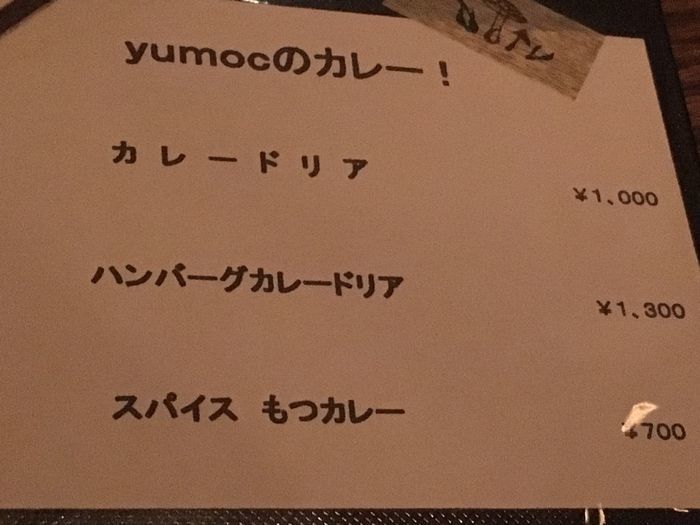 yumocのカレー！
カレードリア
¥1、000
ハンバーグカレードリア
¥1、300
スパイス もつカレー
¥700